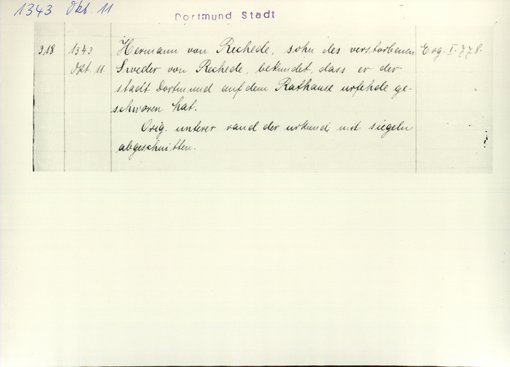 1343 Okt 11
Dortmund Stadt
318 1343 Hermann von Rechede, sohn des verstorbenen Erg. I. 778.
Okt. 11. Sweder von Rechede, bekundet, dass er der
stadt Dortmund auf dem Rathause urfehde ge-
schworen hat.
Orig. unterer rand der urkund mit siegeln
abgeschnitten.